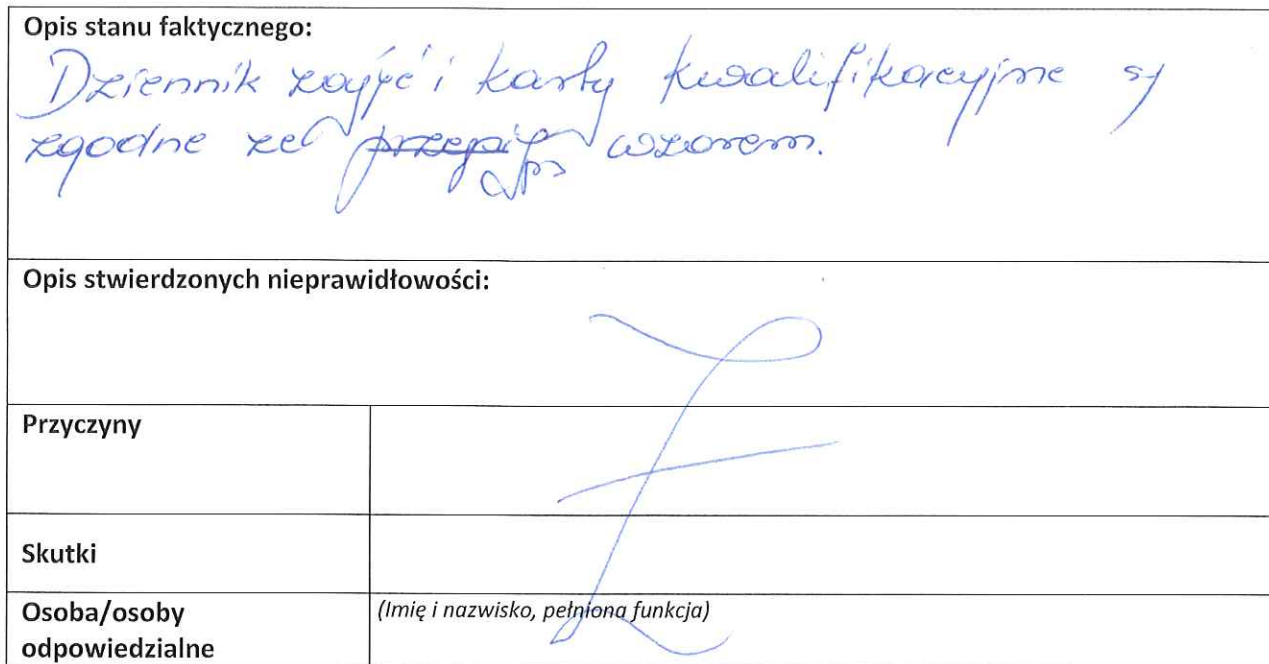 Opis stanu faktycznego:
Dziennik zajęć i karty kwalifikacyjne są
zgodne ze wzorem.
Opis stwierdzonych nieprawidłowości:
Przyczyny
Skutki
Osoba/osoby
odpowiedzialne
(Imię i nazwisko, pełniona funkcja)